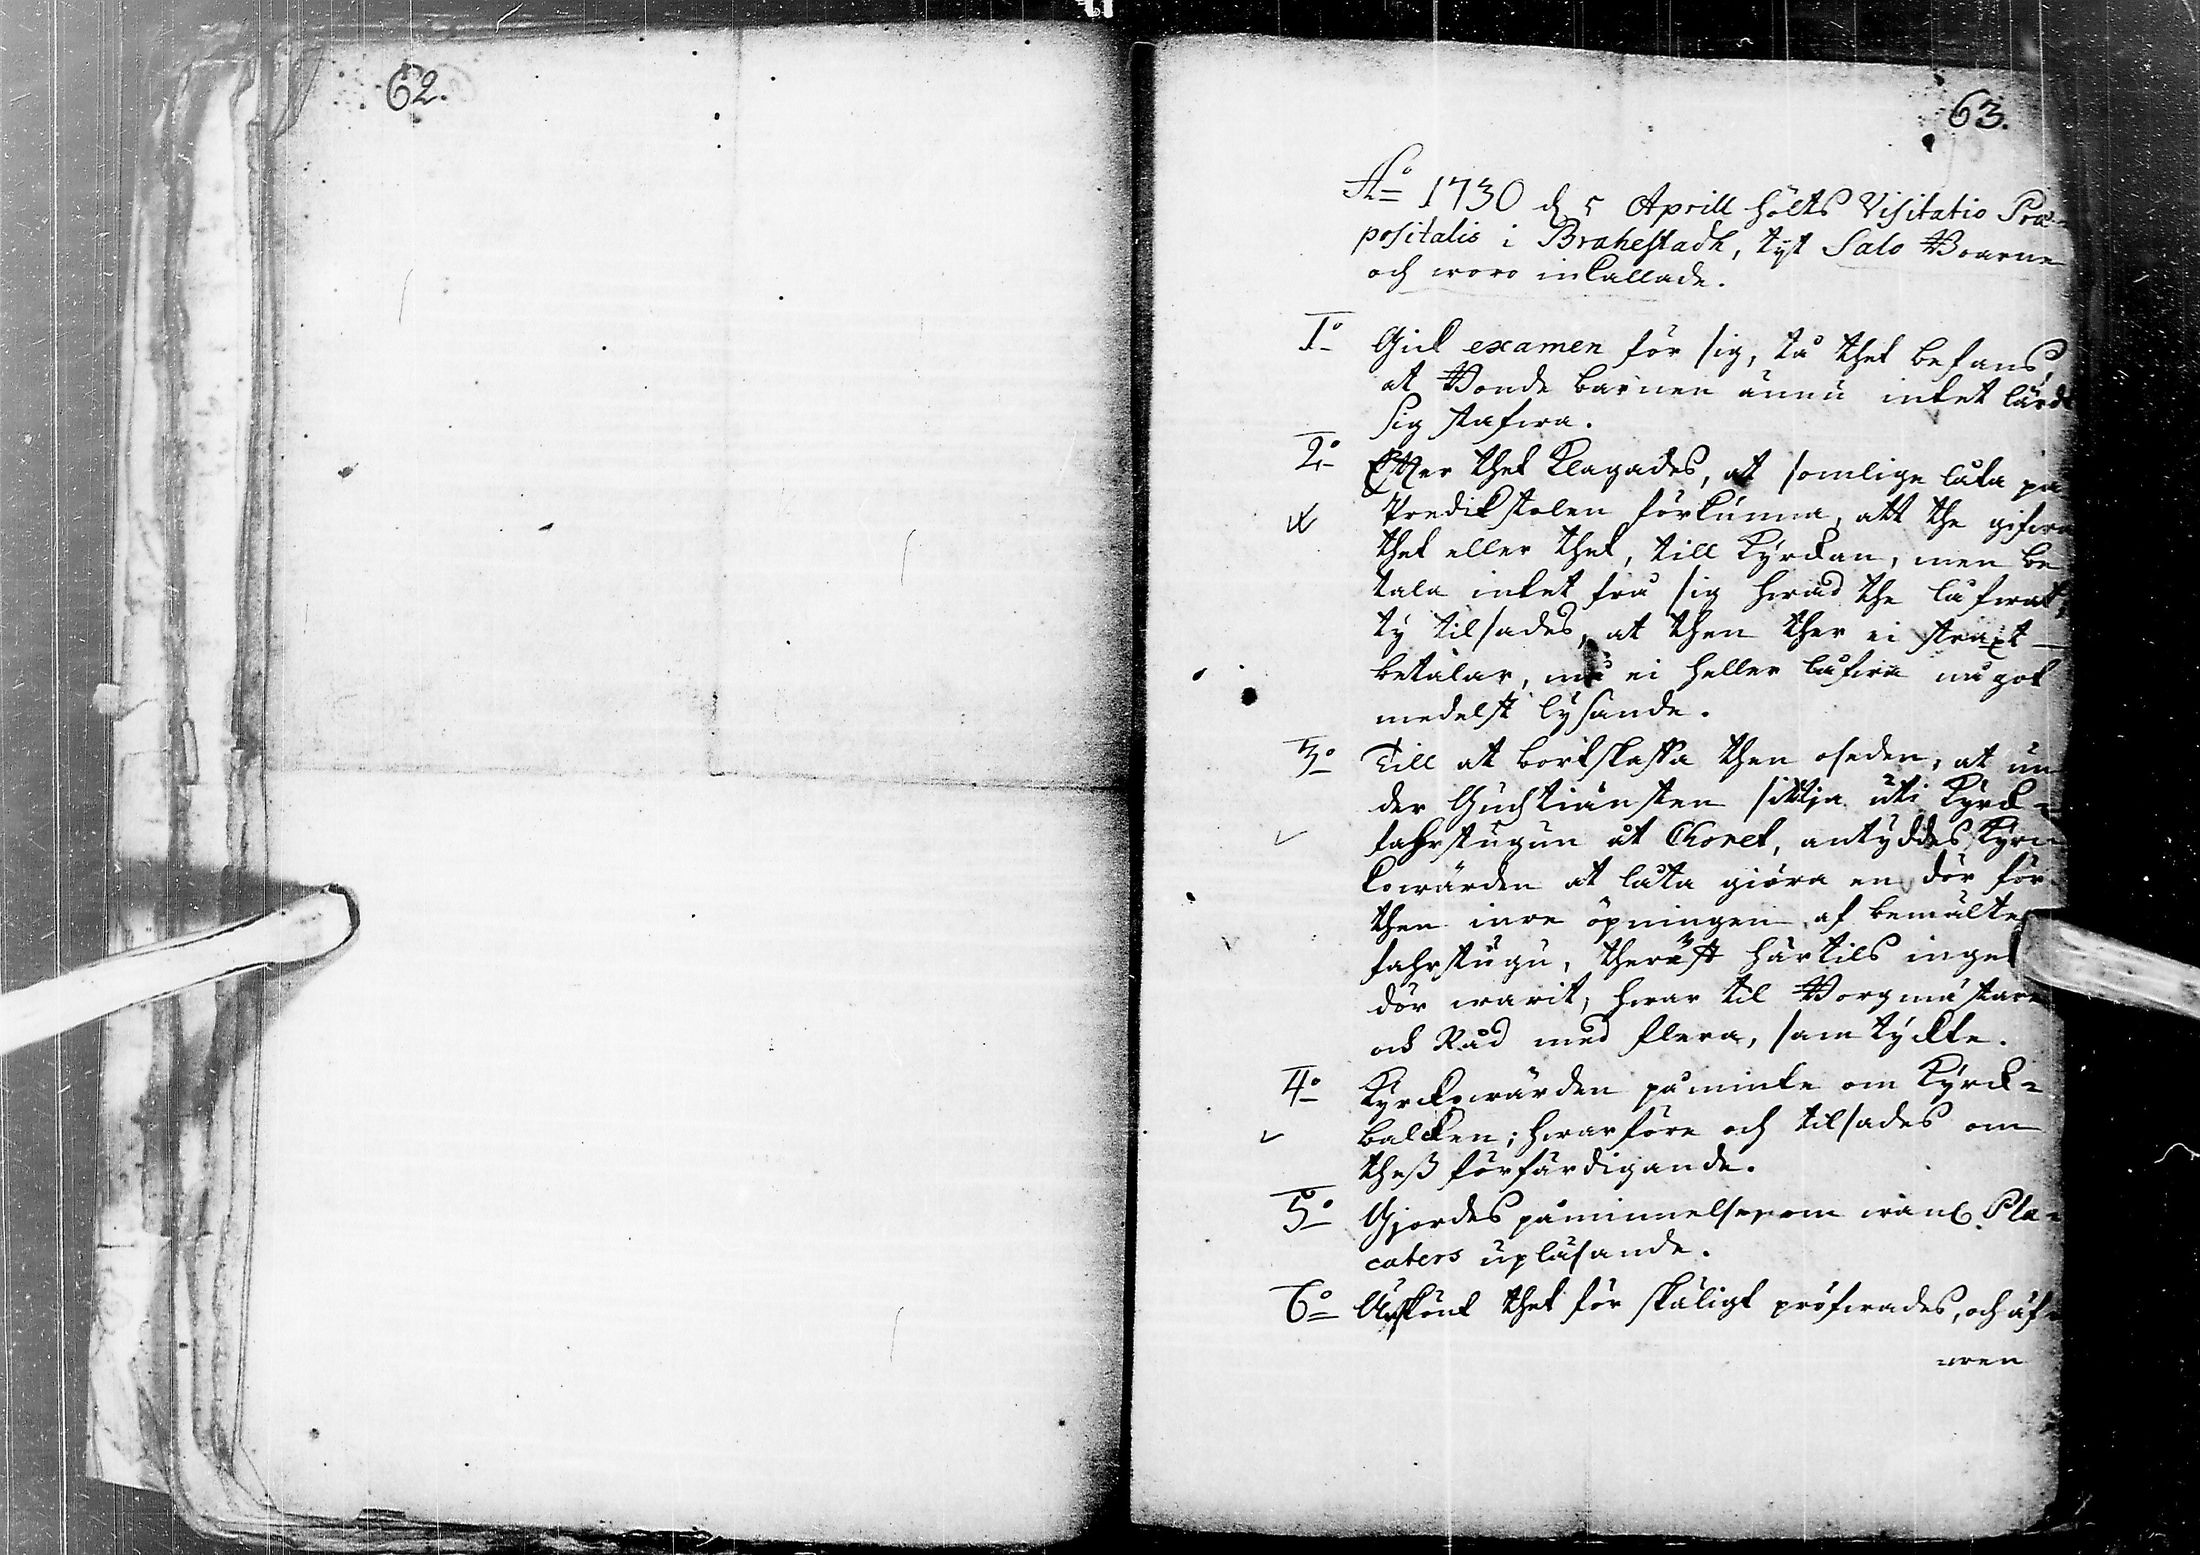 62.
63.
Ao 1730 d 5 Aprill hölts Visitatio Præ-
positalis i Brahestadh, tyt Salo Boarne
och woro inkallade.
1o Gick examen för sig, tå thet befans,
at Bonde barnen ännu intet lärdt
sig stafwa.
2o Efter thet klagades, at somlige låta på
Predikstolen förkunna, att the gifwa
thet eller thet, till Kyrckan, men be
tala intet frå sig hwad the låfwat,
ty tilsades, at then ther ei straxt
betalar, må ei heller låfwa något
medelst lysande.
3o Till at bortskaffa then oseden, at un
der Gudstiänsten sittja uti Kyrck-
farstugun åt Choret, antyddes Kyrc
kowärden at låta giöra en dör för
then inre öpningen af bemälte
farstugu, therest härtils ingen
dör warit, hwar til Borgmästare
och Råd med flera, samtyckte.
4o Kyrckowärden påminte om Kyrck-
balcken; hwarföre och tilsades om
theß förfärdigande.
5o Gjordes påminnelse om wanl. Pla-
caters upläsande.
6o Urskönt thet för skäligt pröfwades, och äf-
wen